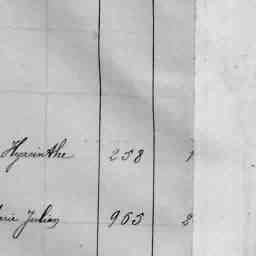 Hyacinthe 258 1
Julien 965 2